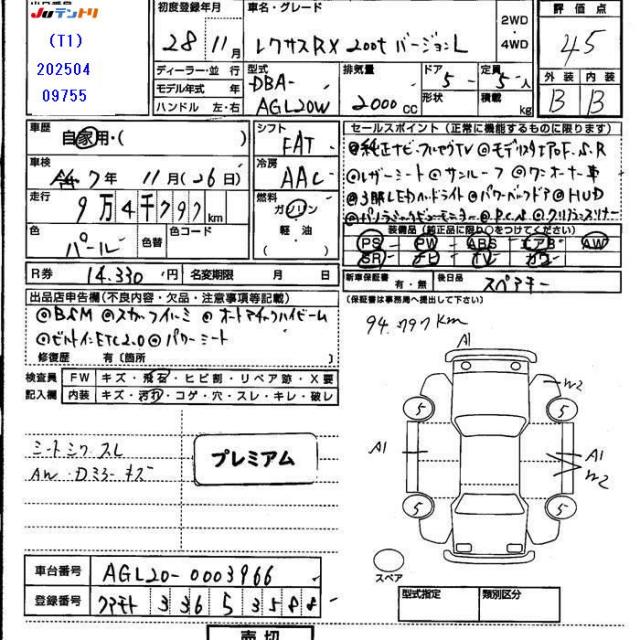 JUテントリ
(T1)
202504
09755
初度登録年月
28年11月
車名・グレード
レクサスRX 200t バージョンL
2WD
4WD
評価点
4.5
外装 内装
B B
ディーラー・並行
モデル年式 年
ハンドル 左・右
型式
DBA-
AGL20W
排気量
2000cc
ドア 5
形状
定員 5人
積載 kg
車歴
自家用・( )
車検
令7年11月(26日)
走行
9万4千797km
色
パール
色替
色コード
シフト
FAT
冷房
AAC
燃料
ガソリン
軽油
セールスポイント(正常に機能するものに限ります)
◎純正ナビ・フルセグTV ◎モデリスタエアロF.S.R
◎レザーシート ◎サンルーフ ◎ワンオーナー車
◎3眼LEDヘッドライト ◎パワーバックドア ◎HUD
◎パノラミックビューモニター ◎P.C.S ◎クリアランスソナー
装備品(純正品に限り○をつけてください)
PS PW ABS エアB AW
SR ナビ TV カワ
R券 14.330円 名変期限 月 日
新車保証書 有・無 後日品 スペアキー
(保証書は事務局へ提出して下さい)
出品店申告欄(不良内容・欠品・注意事項等記載)
◎BSM ◎スカッフイルミ ◎オートマチックハイビーム
◎ビルトインETC2.0 ◎パワーシート
修復歴 有〔箇所 〕
検査員
記入欄
FW キズ・飛石・ヒビ割・リペア跡・X要
内装 キズ・汚れ・コゲ・穴・スレ・キレ・破レ
94.797km
シートシワスレ
AW・Dミラーキズ
プレミアム
A1
W2
5 5
A1 A1
W2
5 5
スペア
車台番号 AGL20-0003966
登録番号 クマモト 336 5 3588
型式指定 類別区分
売切